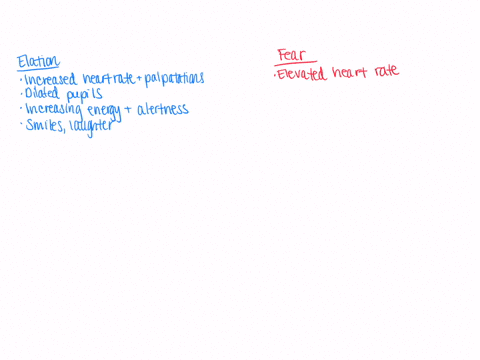 Elation
• Increased heart rate + palpatations
• Dilated pupils
• Increasing energy + alertness
• Smiles, laughter
Fear
• Elevated heart rate